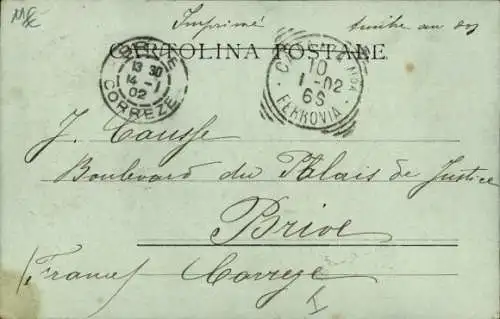 Imprimé
CARTOLINA POSTALE
BRIVE
13 30
14 - 1
02
CORREZE
10
1 - 02
6S
FERROVIA
J. Causse
Boulevard du Palais de Justice
Brive
(France) Correze